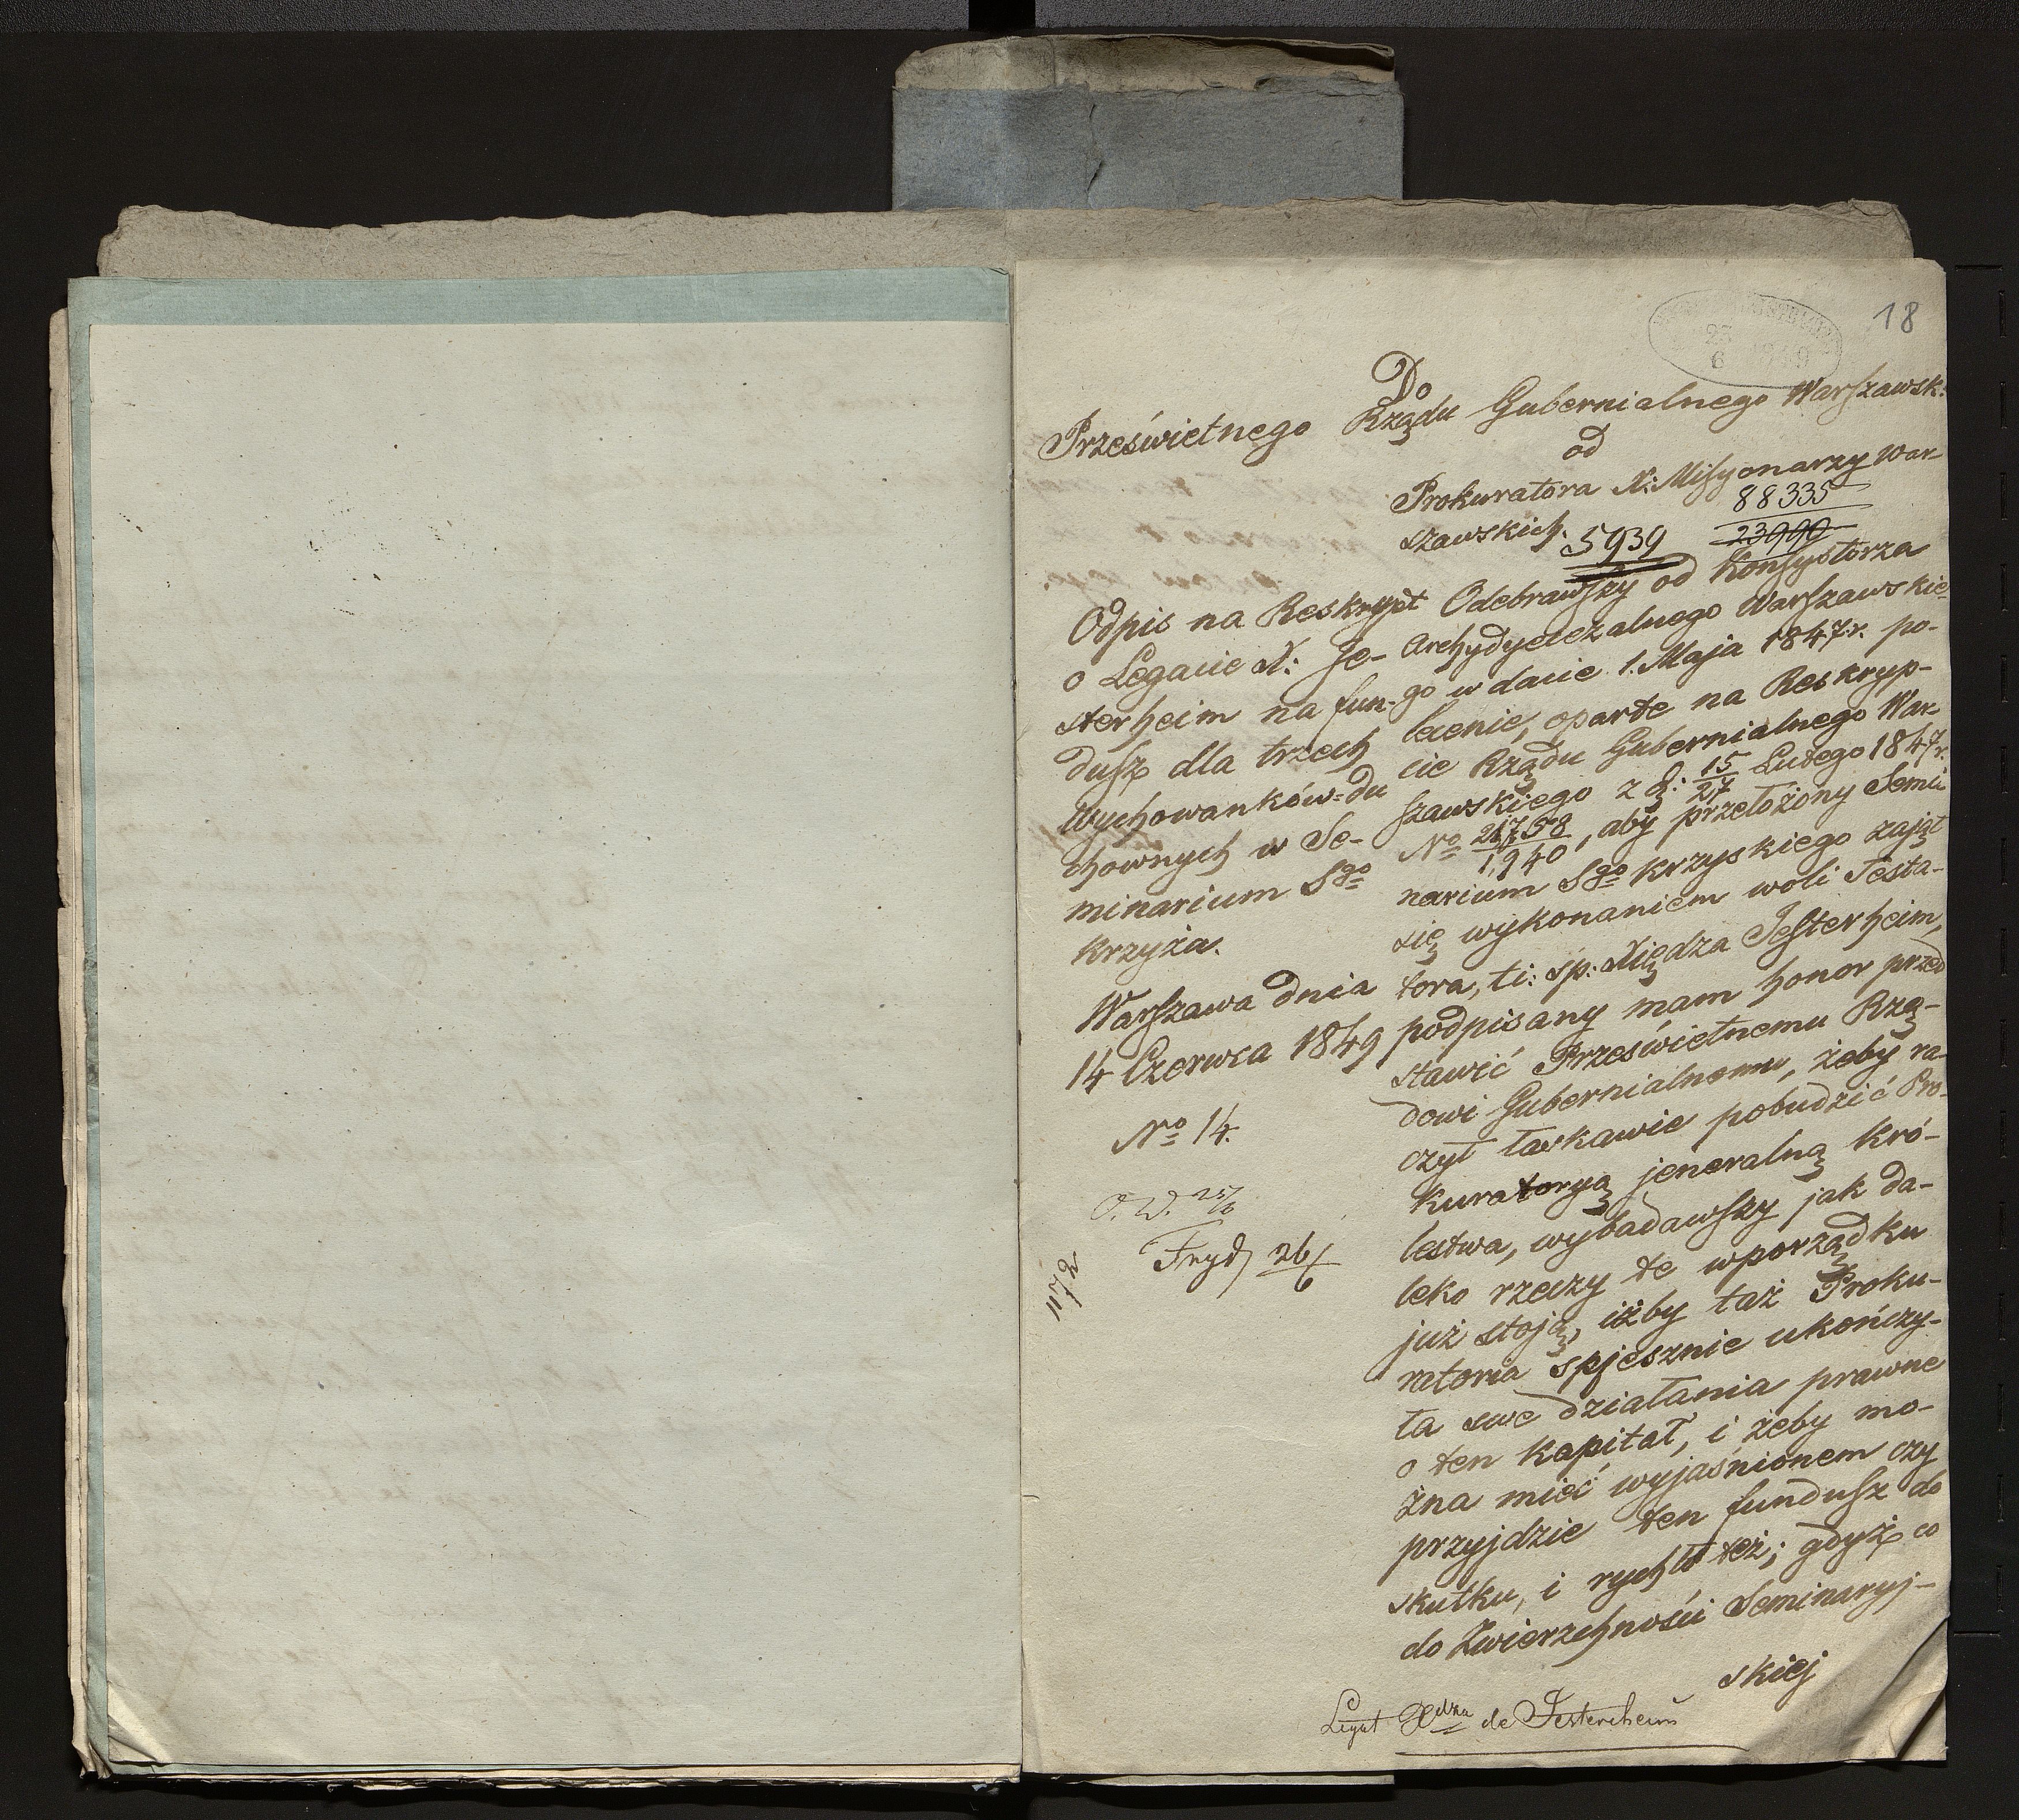 18
23
6 1849
Do
Prześwietnego Rządu Gubernialnego Warszawsk:
od
Prokuratora X: Missyonarzy War-
szawskich.
88335
23990
5939
Odpis na Reskrypt
o Legacie X: Je-
sterheim na fun-
dusz dla trzech
Wychowanków du
chownych w Se-
minarium Sgo
Krzyża.
Warszawa dnia
14 Czerwca 1849
No 14.
O. W. 25/6
Fryd 26/6
Odebrawszy od Konsystorza
Archydyecezalnego Warszawskie-
go w dacie 1. Maja 1847.r. po-
lecenie, oparte na Reskryp-
cie Rządu Gubernialnego War
szawskiego z d: 15/27 Lutego 1847r.
No 21758/1,940, aby przełożony Semi
narium Sgo Krzyskiego zajął
się wykonaniem woli Testa-
tora, ti: sp: Xiędza Jesterheim,
podpisany mam honor przed
stawić Prześwietnemu Rzą-
dowi Gubernialnemu, żeby ra-
czył łaskawie pobudzić Pro-
kuratoryą jeneralną Kró-
lestwa, wybadawszy jak da-
leko rzeczy te wporządku
już stoją, iżby taż Proku-
ratoria spjesznie ukończy-
ła swe działania prawne
o ten kapitał, i żeby mo-
żna mieć wyjaśnionem czy
przyjdzie ten fundusz do
skutku, i rychło też; gdyż co
do Zwierzchności Seminaryj-
skiej
Legat Xdza de Jestercheim